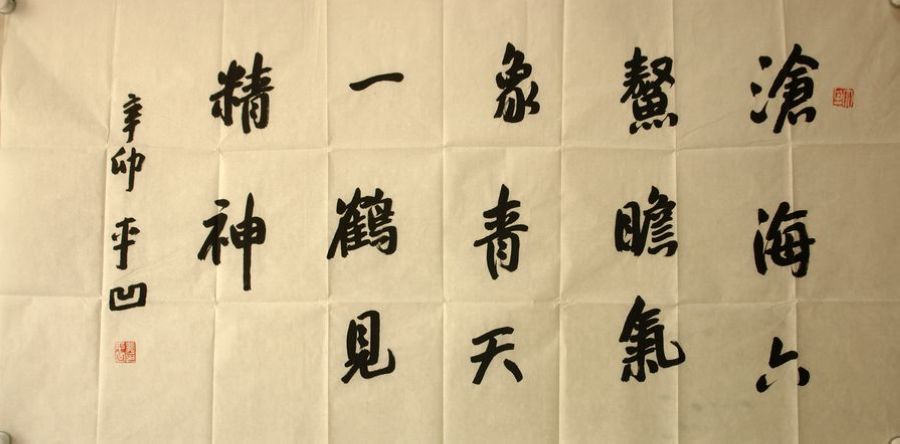 滄海六
鰲瞻氣
象青天
一鶴見
精神
辛卯平凹